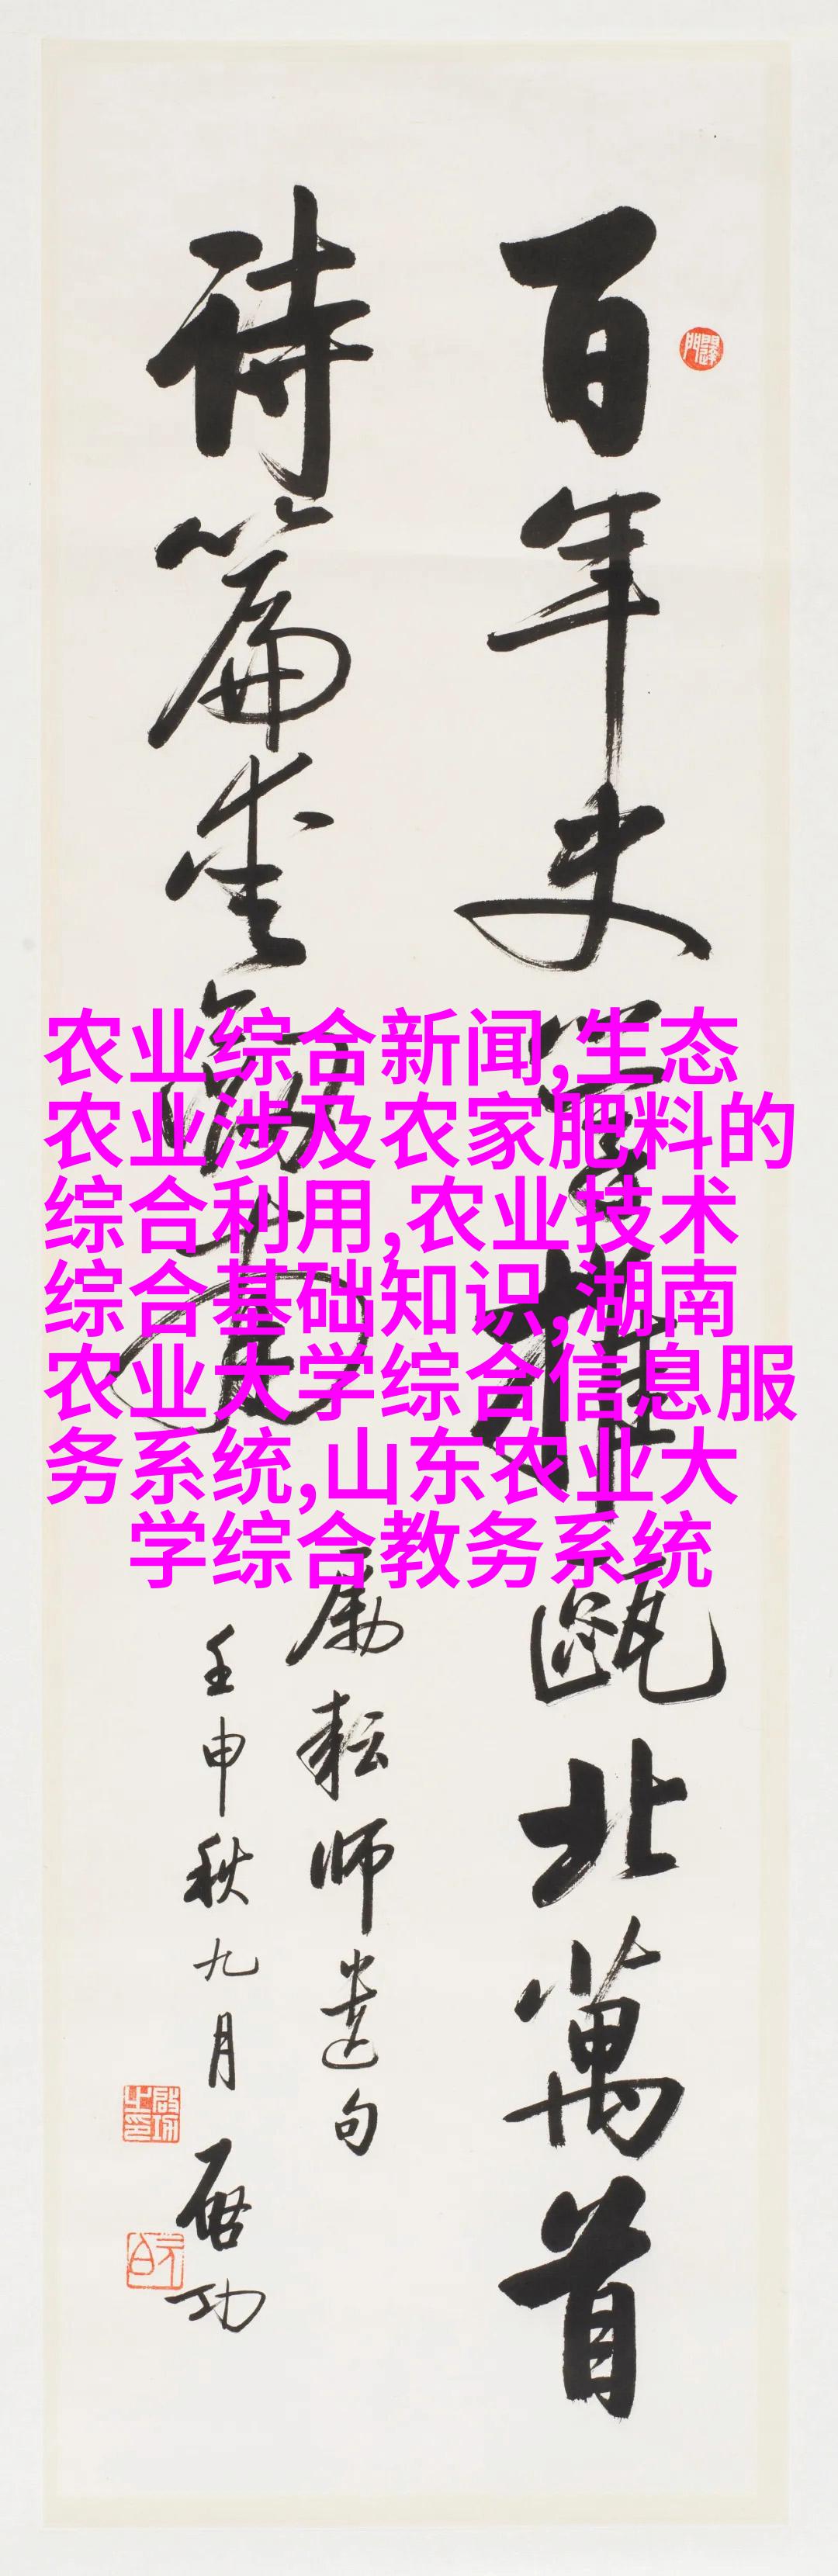 百年史學推甌北萬首
詩篇愛劍南
勵耘師遺句
壬申秋九月 啟功
啟功之印
元白
农业综合新闻,生态
农业涉及农家肥料的
综合利用,农业技术
综合基础知识,湖南
农业大学综合信息服
务系统,山东农业大
学综合教务系统